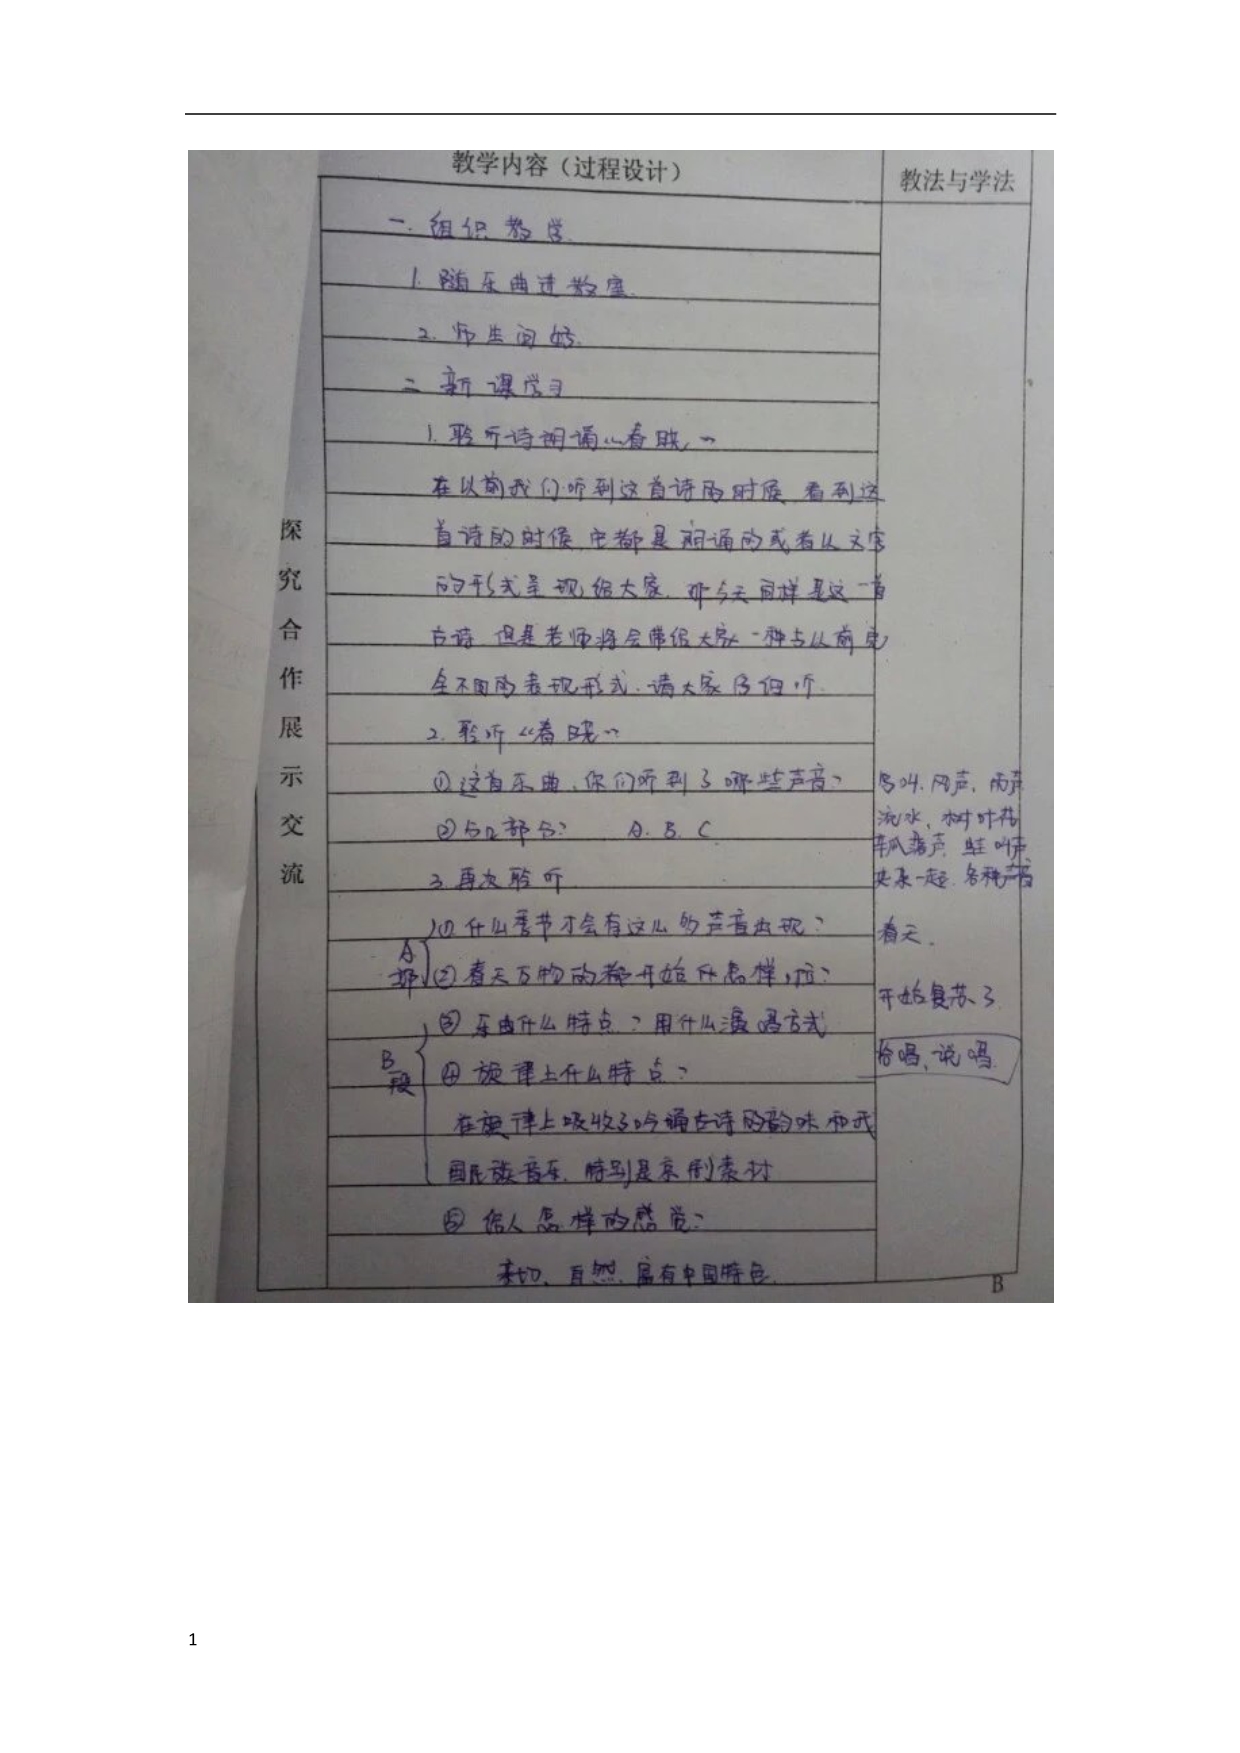 教学内容（过程设计）
教法与学法
一. 组织教学.
1. 随乐曲进教室.
2. 师生问好.
二 新课学习
1. 聆听诗朗诵《春晓》
在以前我们听到这首诗的时候 看到这
首诗的时候 它都是朗诵的或者以文字
的形式呈现给大家. 那今天同样是这一首
古诗. 但是老师将会带给大家一种与以前完
全不同的表现形式. 请大家仔细听.
2. 聆听《春晓》
①这首乐曲, 你们听到了哪些声音?
鸟叫. 风声, 雨声
②分几部分? A. B. C
流水, 树叶花
瓣落声, 蛙叫声
3. 再次聆听
夹杂一起. 各种声音
A部
①什么季节才会有这么多声音出现?
春天.
②春天万物的都开始什么怎样,
开始复苏了.
B段
③乐曲什么特点? 用什么演唱方式
吟唱, 说唱.
④旋律上什么特点?
在旋律上吸收了吟诵古诗的韵味和我
国民族音乐. 特别是京剧素材
⑤给人怎样的感觉?
亲切、自然、富有中国特色.
探究合作展示交流
B
1